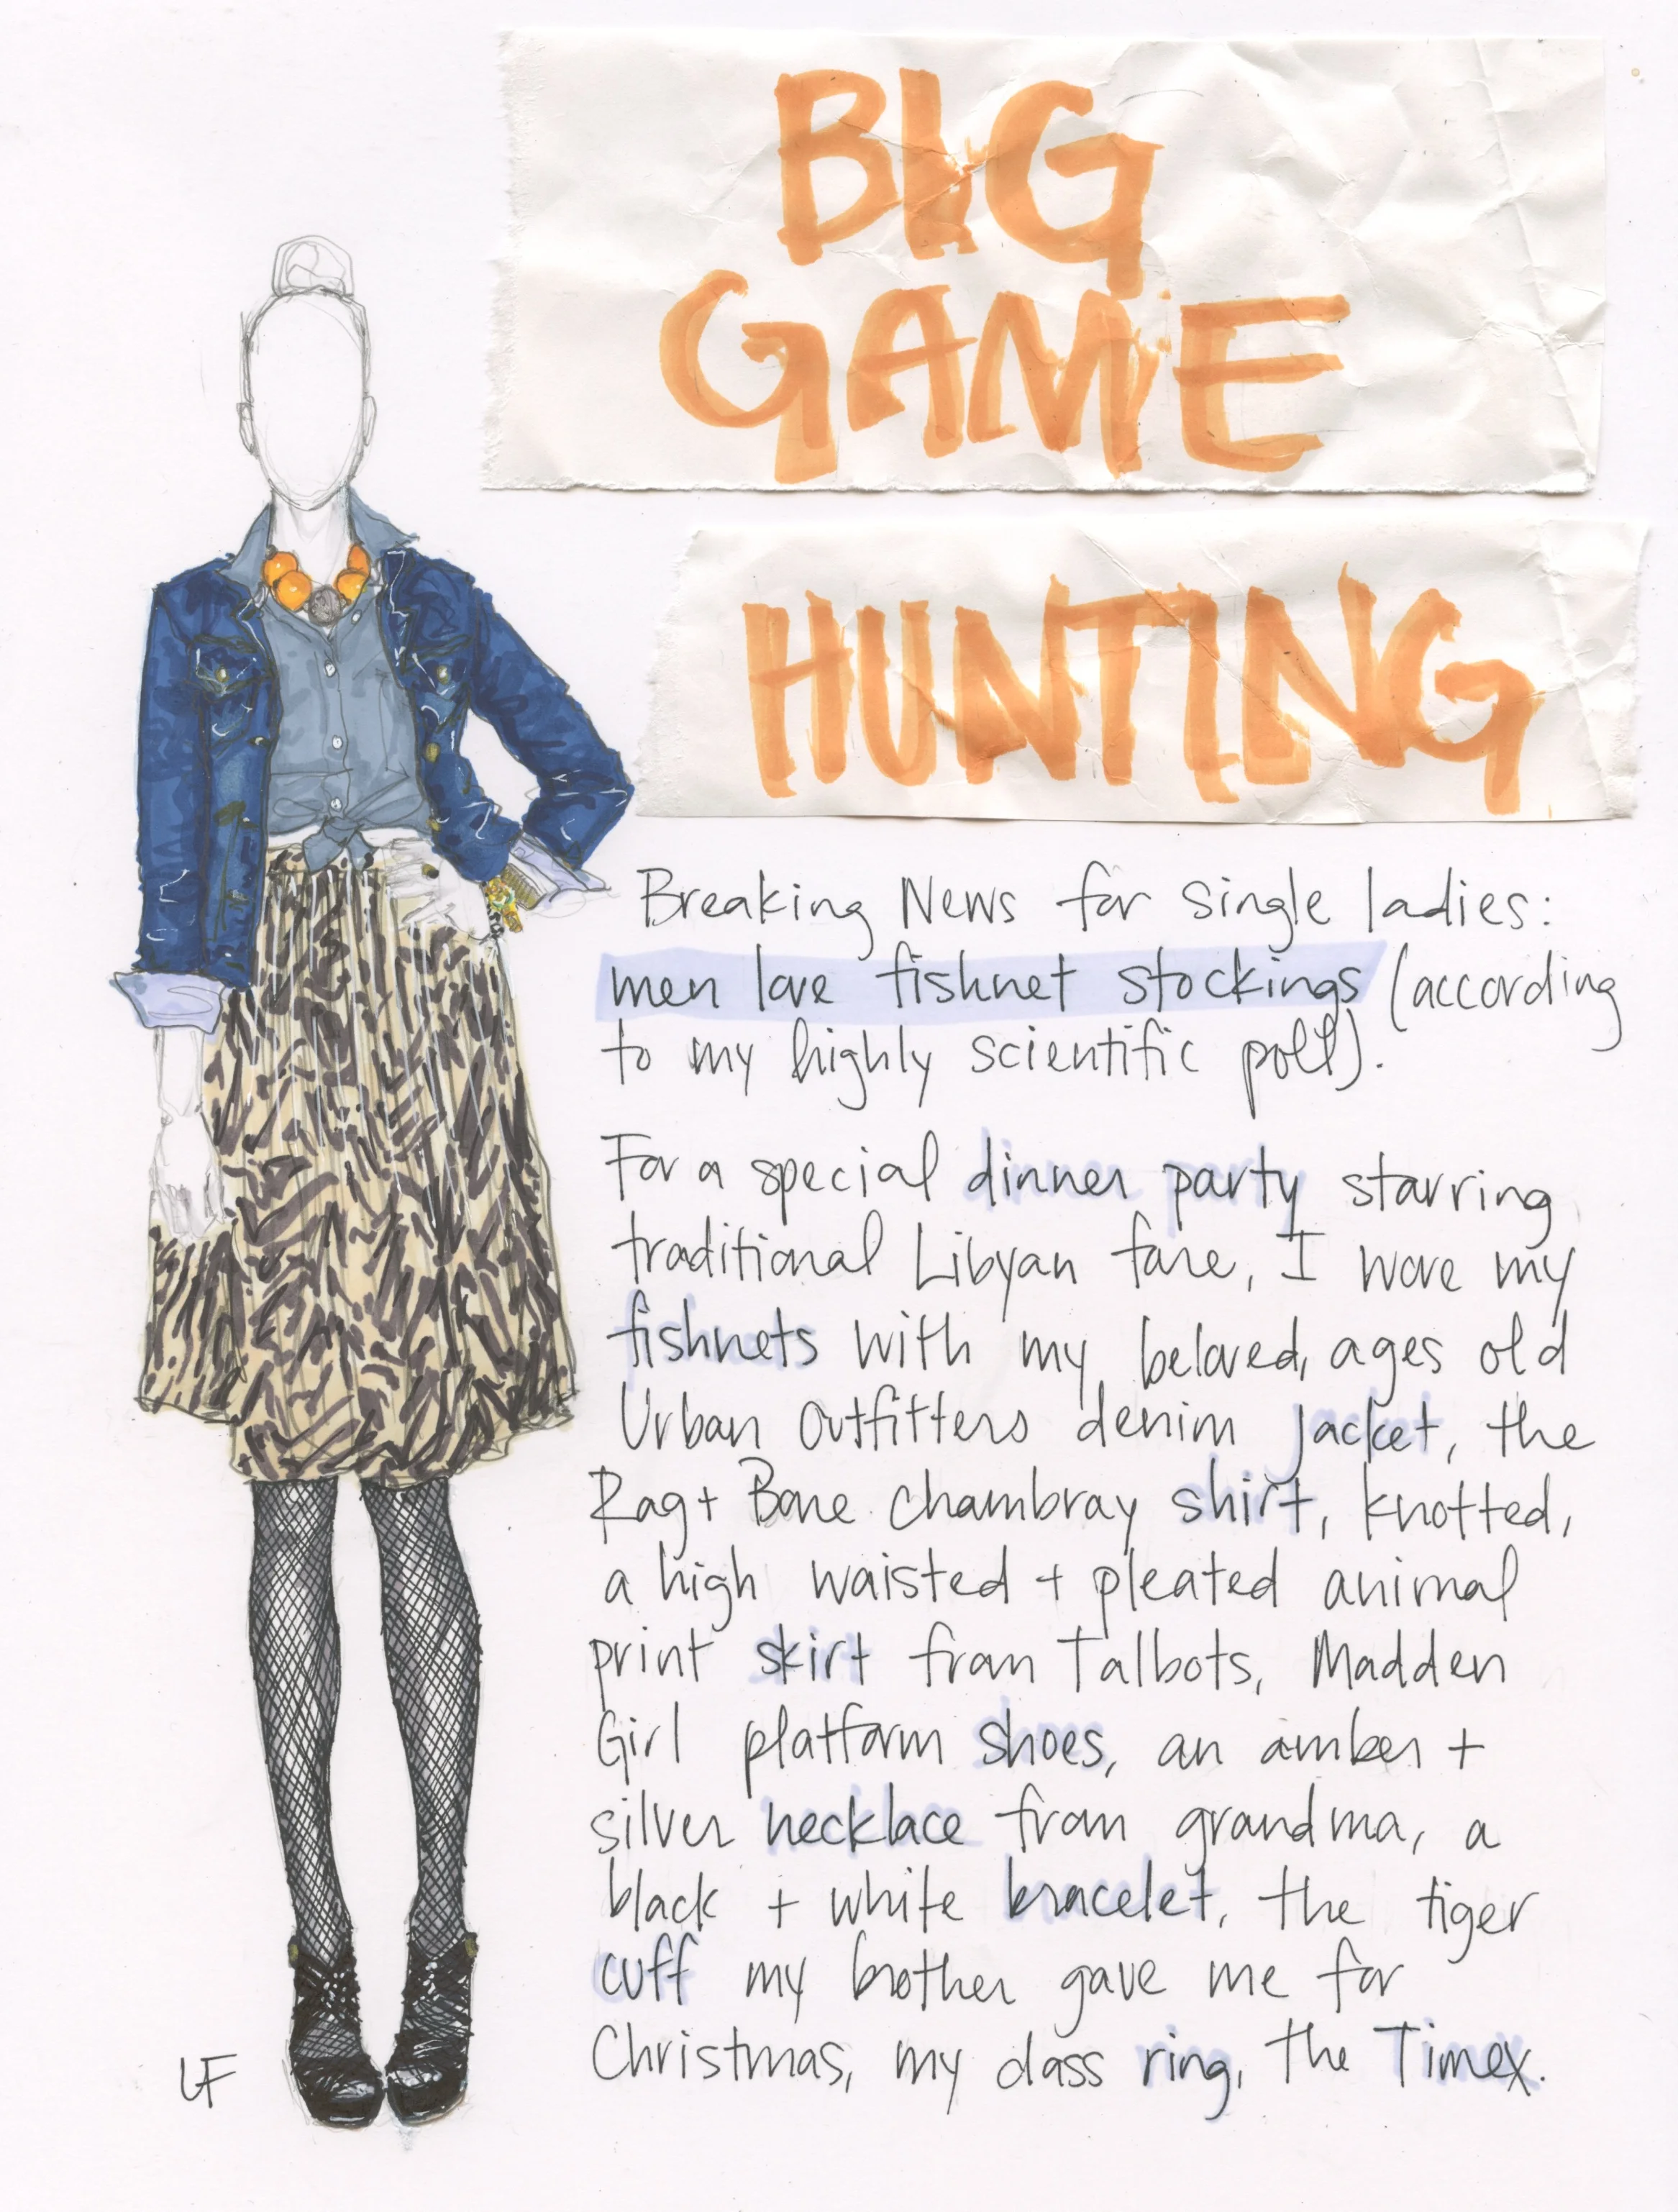 BIG
GAME
HUNTING
Breaking News for single ladies:
men love fishnet stockings (according
to my highly scientific poll).
For a special dinner party starring
traditional Libyan fare, I wore my
fishnets with my beloved, ages old
Urban Outfitters denim jacket, the
Rag + Bone chambray shirt, knotted,
a high waisted + pleated animal
print skirt from Talbots, Madden
Girl platform shoes, an amber +
silver necklace from grandma, a
black + white bracelet, the tiger
cuff my brother gave me for
Christmas, my class ring, the Timex.
LF